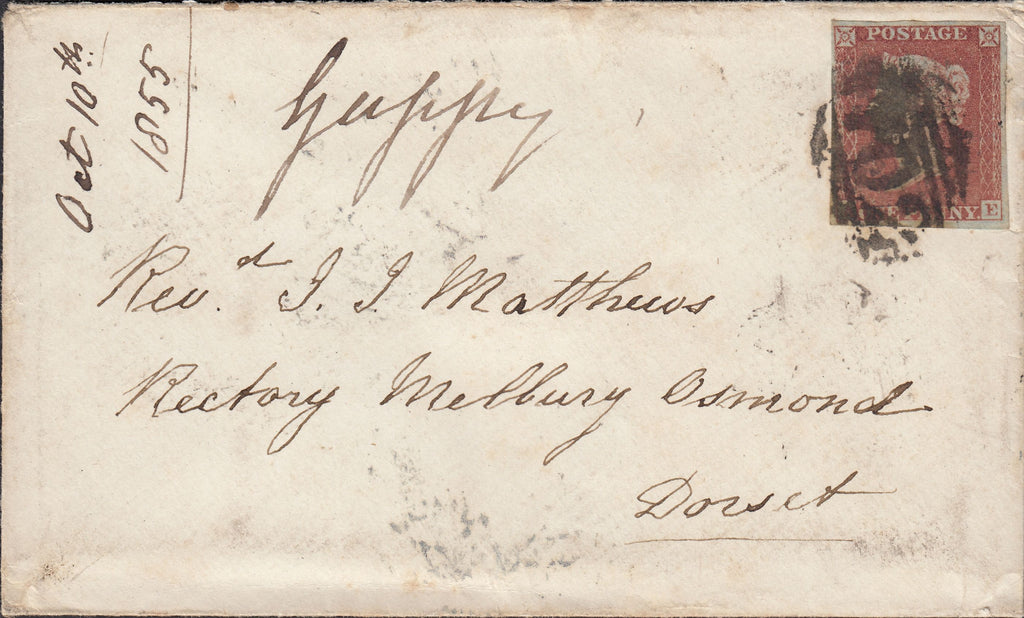 Oct 10th
1855
Guppy
POSTAGE
NY E
Revd J. J Matthews
Rectory Melbury Osmond
Dorset